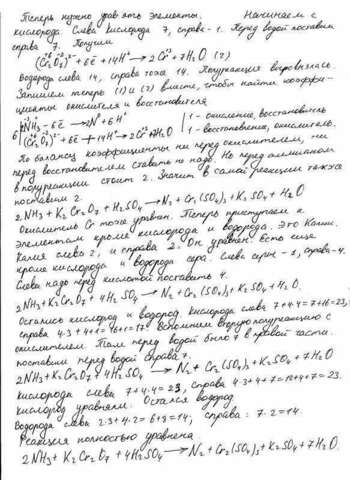 Теперь нужно уравнять элементы. Начинаем с
кислорода. Слева кислорода 7, справа - 1. Перед водой поставим
справа 7. Получим
(Cr₂⁺⁶O₇⁻²)²⁻ + 6ē + 14H⁺ → 2Cr⁺³ + 7H₂O (2)
Водорода слева 14, справа тоже 14. Полуреакция выровнялась.
Запишем теперь (1) и (2) вместе, чтобы найти коэффи-
циенты окислителя и восстановителя
2NH₃ - 6ē → N₂ + 6H⁺ 1 - окисление, восстановитель
(Cr₂O₇)²⁻ + 6ē + 14H⁺ → 2Cr⁺³ + 7H₂O 1 - восстановление, окислитель.
По балансу коэффициенты ни перед окислителем, ни
перед восстановителем ставить не надо. Но перед аммиаком
в полуреакции стоит 2. Значит в самой реакции также
поставим 2.
2NH₃ + K₂Cr₂O₇ + H₂SO₄ → N₂ + Cr₂(SO₄)₃ + K₂SO₄ + H₂O
Окислитель Cr тоже уравнян. Теперь приступаем к
элементам кроме кислорода и водорода. Это Калий.
Калия слева 2, и справа 2. Он уравнян. Есть еще
кроме кислорода и водорода сера. Слева серы - 1, справа - 4.
Слева надо перед кислотой поставить 4.
2NH₃ + K₂Cr₂O₇ + 4H₂SO₄ → N₂ + Cr₂(SO₄)₃ + K₂SO₄ + H₂O.
Остались кислород и водород. Кислорода слева 7+4·4=7+16=23,
справа 4·3+4+1=16+1=17. Вспомним вторую полуреакцию с
окислителем. Там перед водой было 7 в правой части.
поставим перед водой справа 7.
2NH₃ + K₂Cr₂O₇ + 4H₂SO₄ → N₂ + Cr₂(SO₄)₃ + K₂SO₄ + 7H₂O
кислорода слева 7+4·4=23, справа 4·3+4+7=12+4+7=23.
кислород уравняли. Остался водород
Водорода слева 2·3+4·2=6+8=14, справа: 7·2=14.
Реакция полностью уравнена.
2NH₃ + K₂Cr₂O₇ + 4H₂SO₄ → N₂ + Cr₂(SO₄)₃ + K₂SO₄ + 7H₂O.